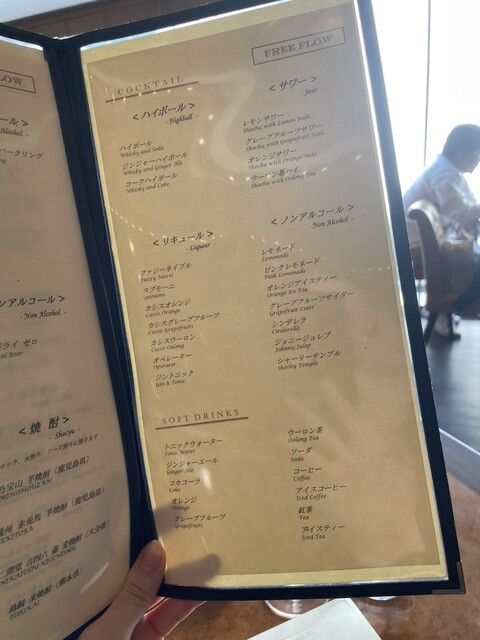 LOW
ール >
Alcohol -
パークリング
ンアルコール >
- Non Alcohol -
ライ ゼロ
al Beer
< 焼 酎 >
- Shocyu -
ロック、水割り、ソーダ割りに限ります
宝山 芋焼酎 (鹿児島県)
赤兎馬 芋焼酎 (鹿児島県)
階堂 吉四六 麦焼酎 (大分県)
鳥飼 米焼酎 (熊本県)
TORIKAI
FREE FLOW
COCKTAIL
< ハイボール >
- Highball -
ハイボール
Whisky and Soda
ジンジャーハイボール
Whisky and Ginger Ale
コークハイボール
Whisky and Coke
< リキュール >
- Liqueur -
ファジーネイブル
Fuzzy Navel
スプモーニ
Spumoni
カシスオレンジ
Cassis Orange
カシスグレープフルーツ
Cassis Grapefruits
カシスウーロン
Cassis Oolong
オペレーター
Operator
ジントニック
Gin & Tonic
< サワー >
- Sour -
レモンサワー
Shochu with Lemon Soda
グレープフルーツサワー
Shochu with Grapefruit Soda
オレンジサワー
Shochu with Orange Soda
ウーロン茶ハイ
Shochu with Oolong Tea
< ノンアルコール >
- Non Alcohol -
レモネード
Lemonade
ピンクレモネード
Pink Lemonade
オレンジアイスティー
Orange Ice Tea
グレープフルーツサイダー
Grapefruit Cider
シンデレラ
Cinderella
ジョニージュレプ
Johnny Julep
シャーリーテンプル
Shirley Temple
SOFT DRINKS
トニックウォーター
Tonic Water
ジンジャーエール
Ginger Ale
コカコーラ
Coke
オレンジ
Orange
グレープフルーツ
Grapefruits
ウーロン茶
Oolong Tea
ソーダ
Soda
コーヒー
Coffee
アイスコーヒー
Iced Coffee
紅茶
Tea
アイスティー
Iced Tea